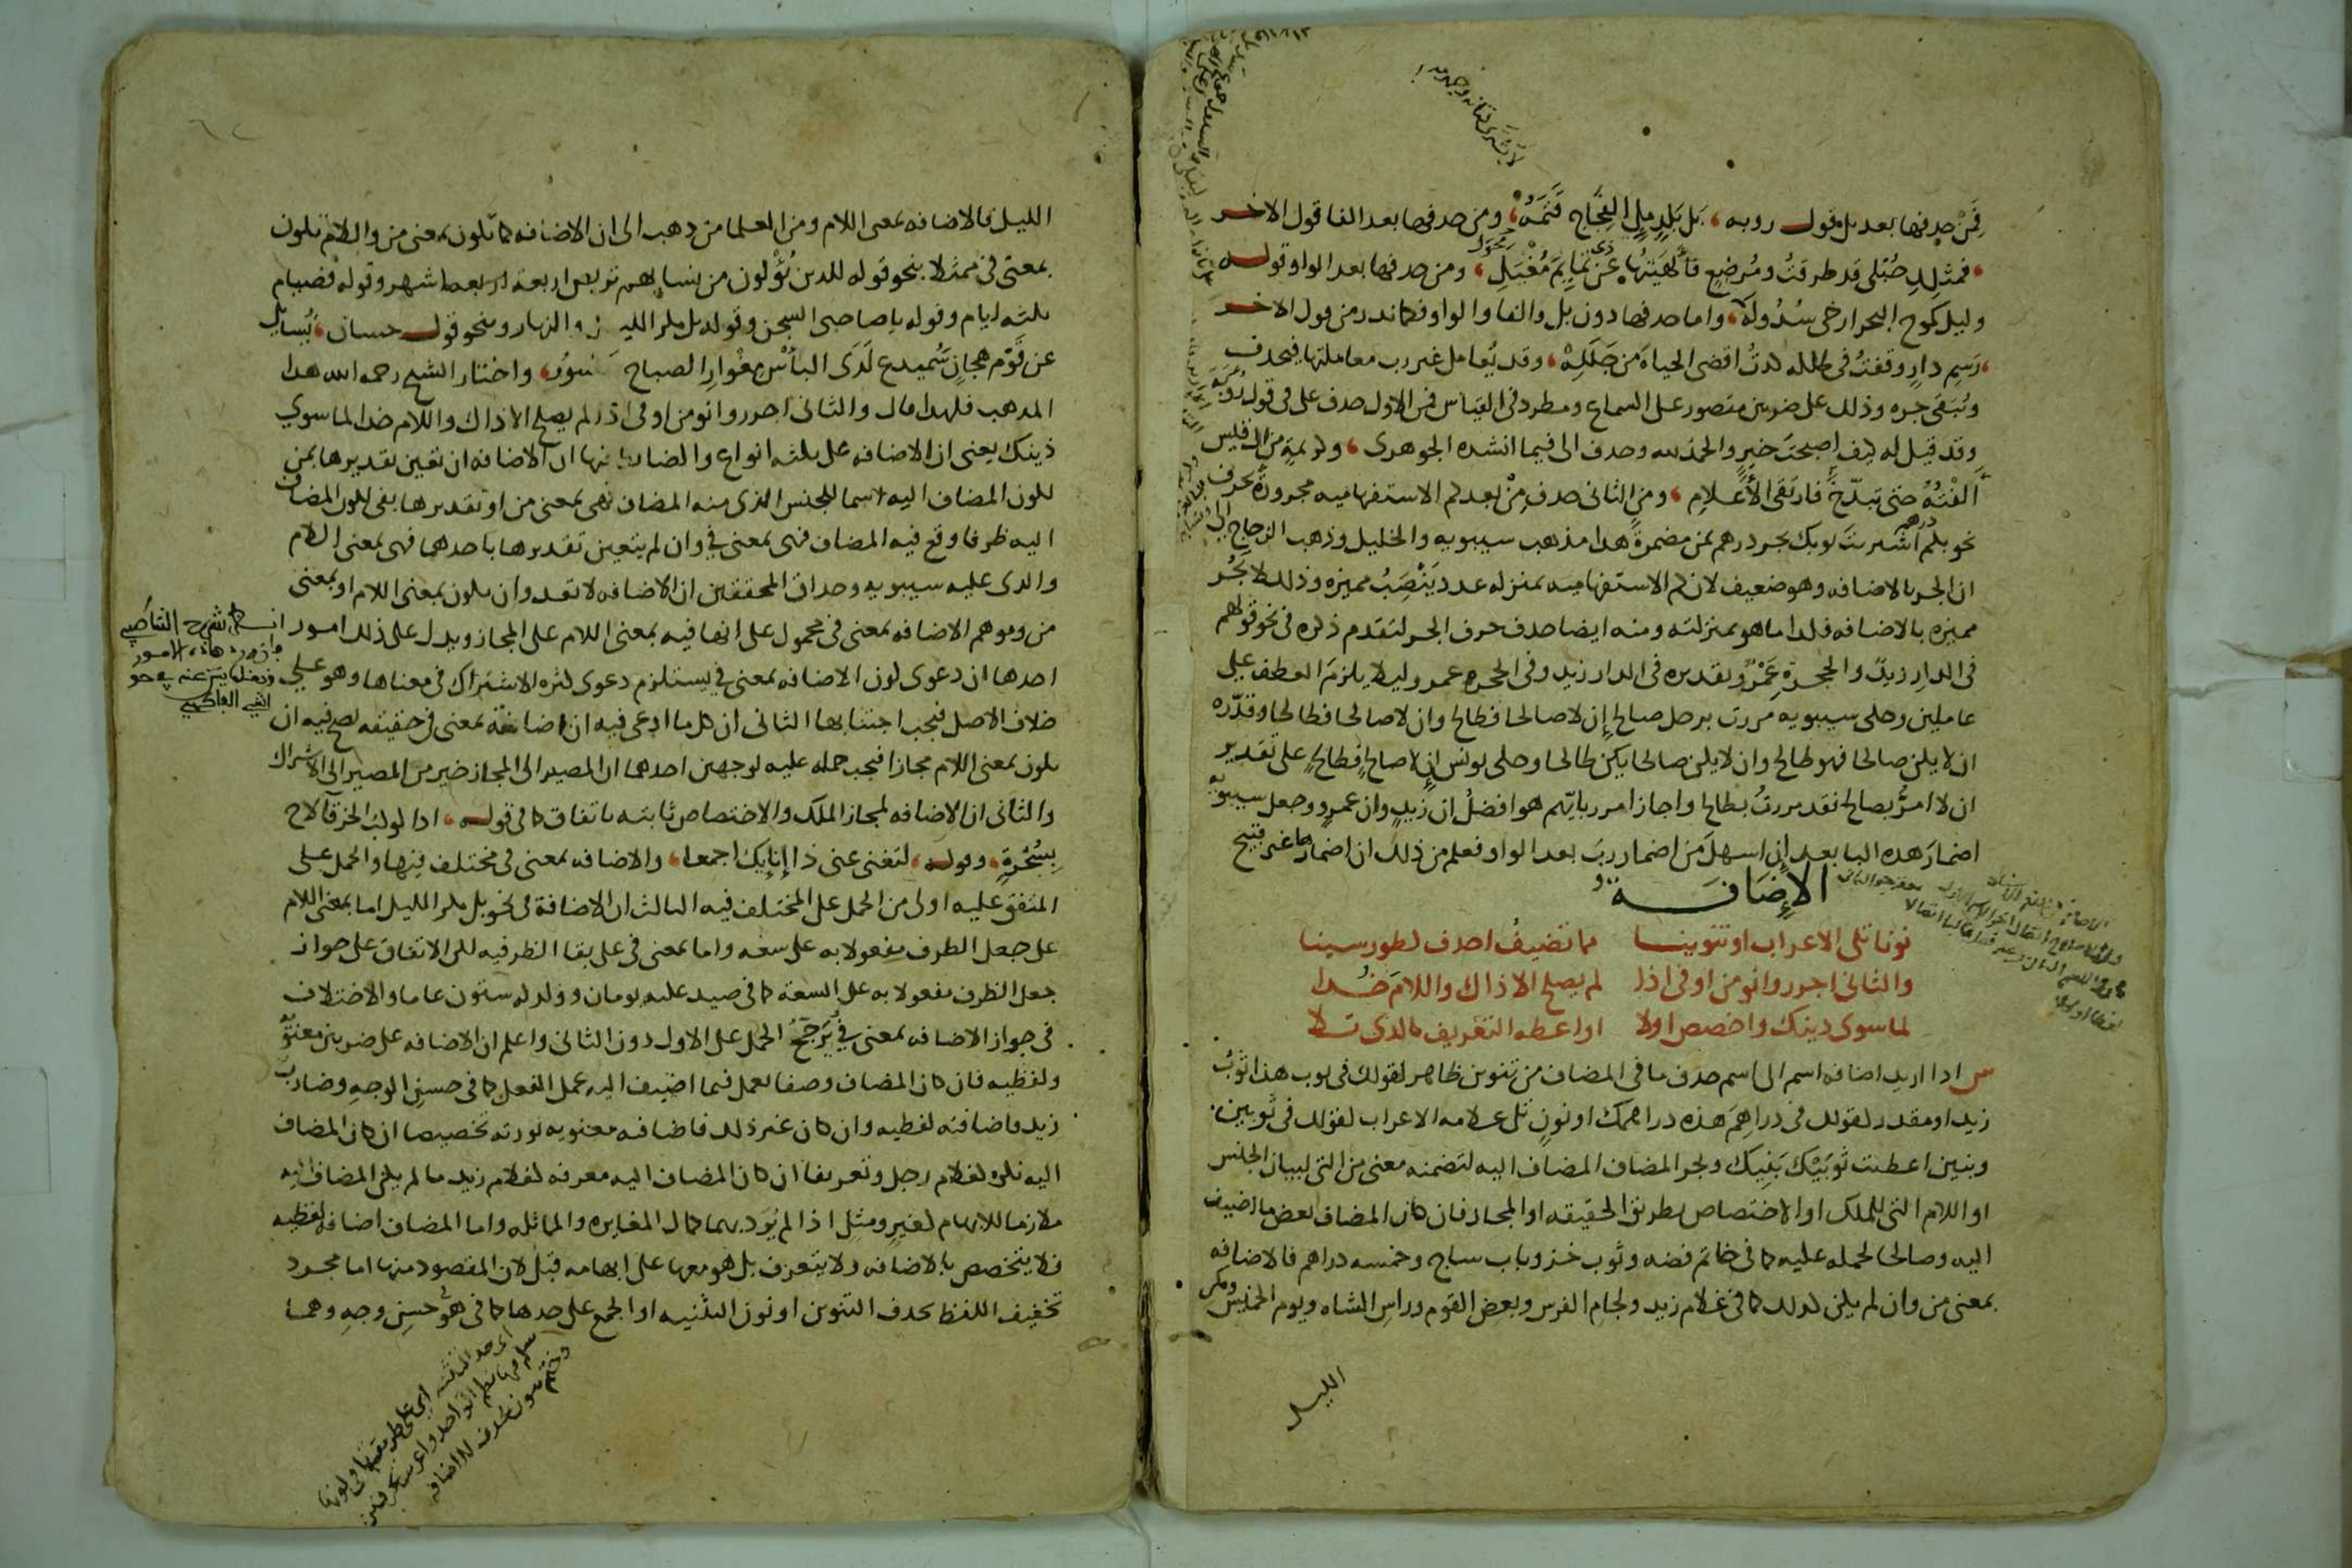 فمن حدفها بعد بل قول روبه بل بلد مل الفجاج قتمه ومن حدفها بعد الفا قول الاخر
فمثلك حبلى قد طرقت ومرضع فألهيتها عن ذى تمايم مغيل ومن حدفها بعد الواو قوله
وليل كموج البحر ارخى سدوله واما حدفها دون بل والفا والواو فكما ندر من قول الاخر
رسم دار وقفت فى طلله كدت اقضى الحياة من جلله وقد يعامل غير رب معاملتها فيحدف
ويبقى جره وذلك على ضربين مقصور على السماع ومطرد فى القياس فمن الاول حدف على فى قول روبة
وقد قيل له كيف اصبحت خير والحمد لله وحدف الى فيما انشده الجوهرى وكريمة من ال قيس
ألفته حتى تبدخ فارتقى الأعلام ومن الثانى حدف من بعد كم الاستفهاميه مجرورة بحرف
نحو بكم درهم اشتريت ثوبك بجر درهم بمن مضمرة هدا مذهب سيبويه والخليل وذهب الزجاج الى
ان الجر بالاضافه وهو ضعيف لان كم الاستفهاميه بمنزله عدد ينصب مميزه وذلك لا يجر
مميزه بالاضافه فكدا ما هو بمنزلته ومنه ايضا حدف حرف الجر لتقدم ذكره فى نحو قولهم
فى الدار زيد والحجرة عمرو تقديره فى الدار زيد وفى الحجره عمرو ليلا يلزم العطف على
عاملين وحكى سيبويه مررت برجل صالح إن لا صالحا فطالح وان لا صالحا فطالحا وقدره
ان لا يكن صالحا فهو طالح وان لا يكن صالحا يكن طالحا وحكى يونس إن لا صالح فطالح على تقدير
ان لا امر بصالح فقد مررت بطالح واجاز امرر بايهم هو افضل ان زيد وان عمرو وجعل سيبويه
اضمار هده البا بعد إن اسهل من اضمار رب بعد الواو فعلم من ذلك ان اضمارها غير قبيح
الإضافة
نونا تلى الاعراب او تنوينا مما تضيف احدف كطور سينا
والثانى اجرر وانو من او فى اذا لم يصلح الا ذاك واللام خدا
لما سوى دينك واخصص اولا او اعطه التعريف بالدى تلا
س ادا اريد اضافه اسم الى اسم حدف ما فى المضاف من تنوين ظاهر كقولك فى ثوب هذا ثوب
زيد او مقدر كقولك فى دراهم هذه دراهمك او نون تلى علامه الاعراب كقولك فى ثوبين
وبنين اعطيت ثوبيك بنيك ويجر المضاف المضاف اليه لتضمنه معنى من التى لبيان الجنس
او اللام التى للملك او الاختصاص بطريق الحقيقه او المجاز فان كان المضاف بعض ما اضيف
اليه وصالحا لحمله عليه كما فى خاتم فضه وثوب خز وباب ساج وخمسه دراهم فالاضافه
بمعنى من وان لم يكن كدلك كما فى غلام زيد ولجام الفرس وبعض القوم وراس الشاه ويوم الخميس ومكر
الليل
الليل فالاضافه بمعنى اللام ومن العلما من دهب الى ان الاضافه كما تكون بمعنى من واللام تكون
بمعنى فى ممثلا بنحو قوله للدين يؤلون من نسايهم تربص اربعة اشهر وقوله فصيام
ثلثه ايام وقوله يا صاحبى السجن وقوله بل مكر الليل والنهار وبنحو قول حسان تسايل
عن قرم هجان سميدع لدى البأس مغوار الصباح جسور واختار الشيخ رحمه الله هدا
المدهب فلهدا قال والثانى اجرر وانو من او فى اذا لم يصلح الا ذاك واللام خدا لما سوى
ذينك يعنى ان الاضافه على ثلثه انواع والضابط فيها ان الاضافه ان تعين تقديرها بمن
لكون المضاف اليه اسما للجنس الذى منه المضاف فهى بمعنى من او تقديرها بفى لكون المضاف
اليه ظرفا وقع فيه المضاف فهى بمعنى فى وان لم يتعين تقديرها باحدهما فهى بمعنى اللام
والدى عليه سيبويه وحداق المحققين ان الاضافه لا تعدو ان تكون بمعنى اللام او بمعنى
من وموهم الاضافه بمعنى فى محمول على انها فيه بمعنى اللام على المجاز ويدل على ذلك امور
احدها ان دعوى كون الاضافه بمعنى فى يستلزم دعوى كثره الاشتراك فى معناها وهو على
خلاف الاصل فيجب اجتنابها الثانى ان كل ما ادعى فيه ان اضافته بمعنى فى حقيقه يصح فيه ان
يكون بمعنى اللام مجازا فيجب حمله عليه لوجهين احدهما ان المصير الى المجاز خير من المصير الى الاشتراك
والثانى ان الاضافه لمجاز الملك والاختصاص ثابته باتفاق كما فى قوله ادا كوكب الخرقآ لاح
بسحرة وقوله لتغنى عنى ذا إنايك اجمعا والاضافه بمعنى فى مختلف فيها والحمل على
المتفق عليه اولى من الحمل على المختلف فيه الثالث ان الاضافة فى نحو بل مكر الليل اما بمعنى اللام
على جعل الظرف مفعولا به على سعه واما بمعنى فى على بقا الظرفيه لكن الاتفاق على جواز
جعل الظرف مفعولا به على السعة كما فى صيد عليه يومان وولد له ستون عاما والاختلاف
فى جواز الاضافه بمعنى فى يرجح الحمل على الاول دون الثانى واعلم ان الاضافه على ضربين معنويه
ولفظيه فان كان المضاف وصفا يعمل فيما اضيف اليه عمل الفعل كما فى حسن الوجه وضارب
زيد فاضافته لفظيه وان كان غير ذلك فاضافته معنويه تورثه تخصيصا ان كان المضاف
اليه نكره كغلام رجل وتعريفا ان كان المضاف اليه معرفه كغلام زيد ما لم يكن المضاف اليه
ملازما للابهام كغير ومثل اذا لم يرد بهما كمال المغايره والمماثله واما المضاف اضافه لفظيه
فلا يتخصص بالاضافه ولا يتعرف بل هو معها على ابهامه قبل لان المقصود منها اما مجرد
تخفيف اللفظ بحدف التنوين او نون التثنيه او الجمع على حدها كما فى هو حسن وجه وهما